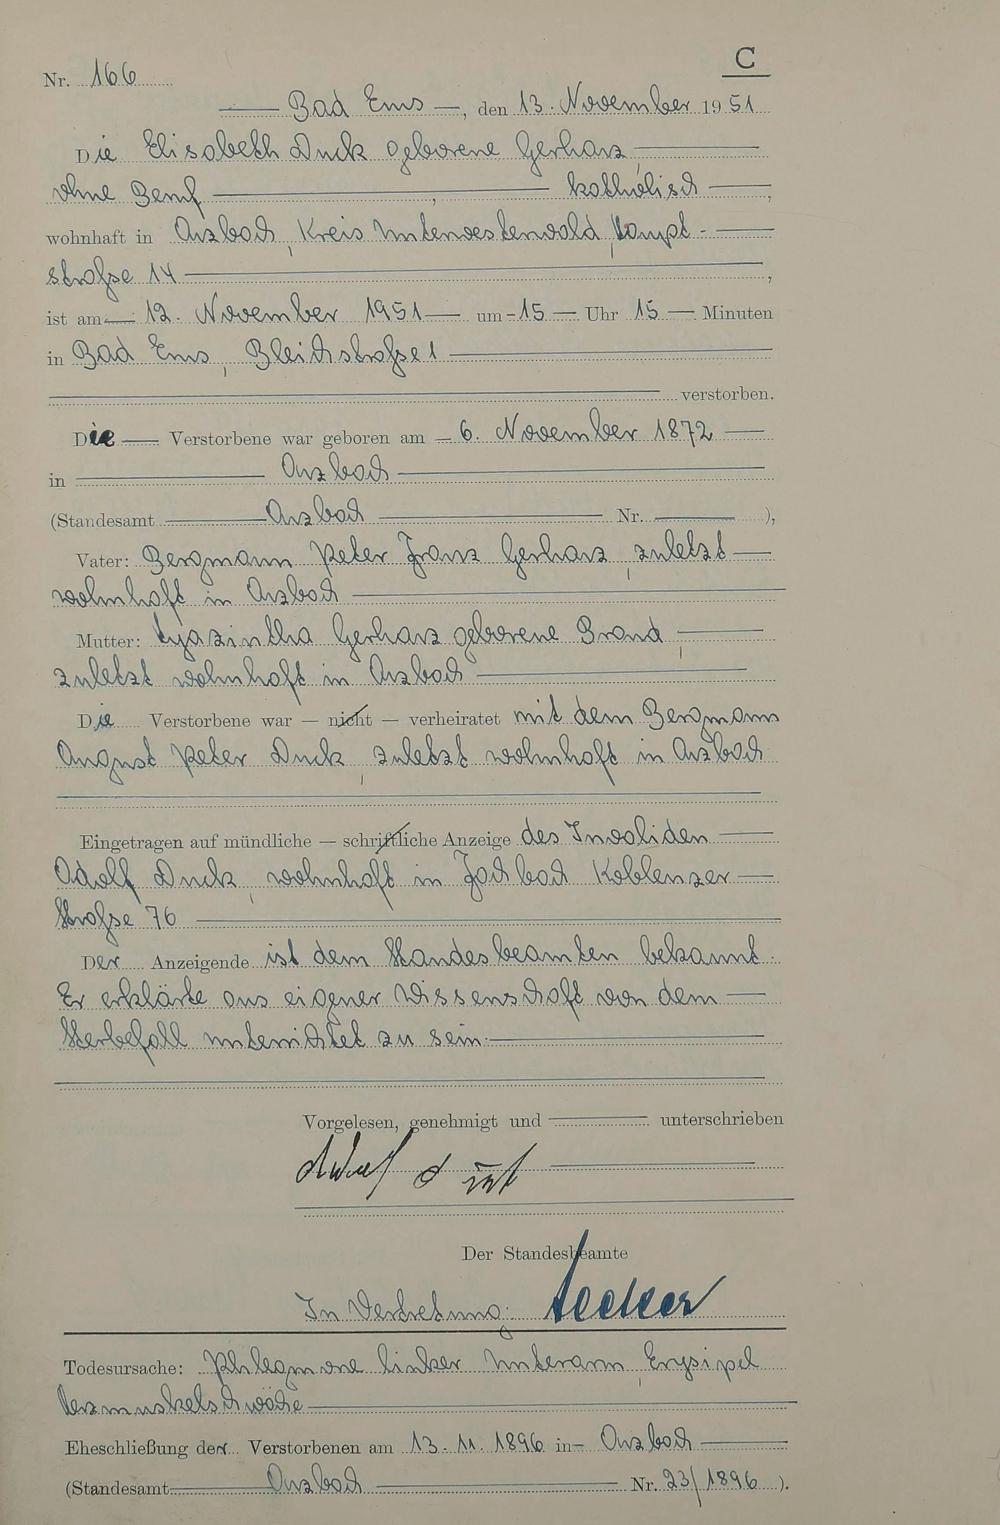 C
Nr. 166
Bad Ems, den 13. November 1951
Die Elisabeth Duck geborene Gerharz
ohne Beruf, katholisch,
wohnhaft in Arzbach, Kreis Unterwesterwald, Haupt-
straße 14,
ist am 12. November 1951 um 15 Uhr 15 Minuten
in Bad Ems, Bleichstraße 1
verstorben.
Die Verstorbene war geboren am 6. November 1872
in Arzbach
(Standesamt Arzbach Nr. ),
Vater: Bergmann Peter Franz Gerharz, zuletzt
wohnhaft in Arzbach
Mutter: Hyazintha Gerharz geborene Brand,
zuletzt wohnhaft in Arzbach
Die Verstorbene war — nicht — verheiratet mit dem Bergmann
August Peter Duck, zuletzt wohnhaft in Arzbach
Eingetragen auf mündliche — schriftliche Anzeige des Invaliden
Adolf Duck, wohnhaft in Fachbach Koblenzer
Straße 76
Der Anzeigende ist dem Standesbeamten bekannt.
Er erklärte aus eigener Wissenschaft von dem
Sterbefall unterrichtet zu sein.
Vorgelesen, genehmigt und unterschrieben
Der Standesbeamte
In Vertretung:
Todesursache: Phlegmone linker Unterarm, Erysipel
Herzmuskelschwäche
Eheschließung der Verstorbenen am 13. 11. 1896 in Arzbach
(Standesamt Arzbach Nr. 23/1896).